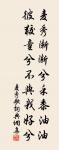 麦秀渐渐兮禾黍油油
彼狡童兮不与我好兮
麦秀歌诗词典传集